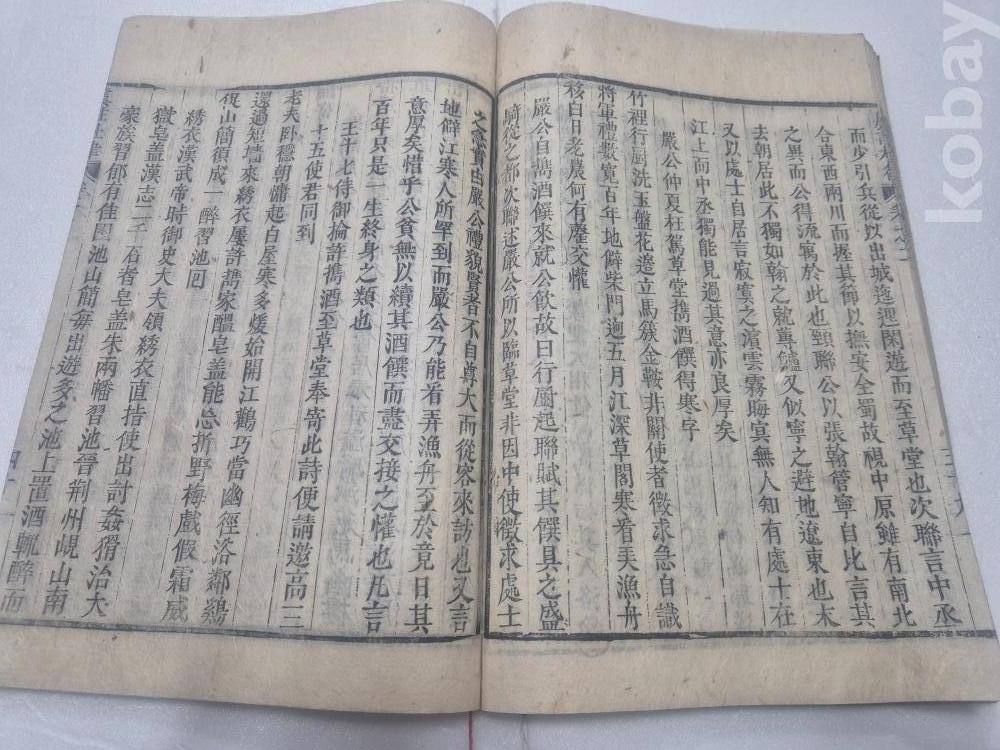 而少引兵從以出城迤邐閑遊而至草堂也次聯言中丞
合東西兩川而握其節以撫安全蜀故視中原雖有南北
之異而公得流寓於此也頸聯公以張翰管寧自比言其
去朝居此不獨如翰之就蓴鱸又似寧之避地遼東也末
又以處士自居言寂寞之濵雲霧晦冥無人知有處士在
江上而中丞獨能見過其意亦良厚矣
嚴公仲夏枉駕草堂擕酒饌得寒字
竹裡行厨洗玉盤花邉立馬簇金鞍非關使者徵求急自識
將軍禮數寛百年地僻柴門迥五月江深草閣寒看美漁舟
移白日老農何有罄交懽
嚴公自擕酒饌來就公飲故曰行厨起聯賦其饌具之盛
騎從之都次聯述嚴公所以臨草堂非因中使徵求處士
之急實由嚴公禮貌賢者不自尊大而從容來訪也又言
地僻江寒人所罕到而嚴公乃能看弄漁舟至於竟日其
意厚矣惜乎公貧無以續其酒饌而盡交接之懽也凡言
百年只是一生終身之類也
王十七侍御掄許擕酒至草堂奉寄此詩便請邀高三
十五使君同到
老夫卧穩朝慵起白屋寒多煖始開江鸛巧當幽徑浴鄰鷄
還過短墻來綉衣屢許擕家醞皂蓋能忘折野梅戲假霜威
促山簡須成一醉習池回
綉衣漢武帝時御史大夫領綉衣直指使出討姦猾治大
獄皂盖漢志二千石者皂盖朱兩幡習池晉荆州峴山南
豪族習郁有佳園池山簡每出遊多之池上置酒輒醉而
kobay